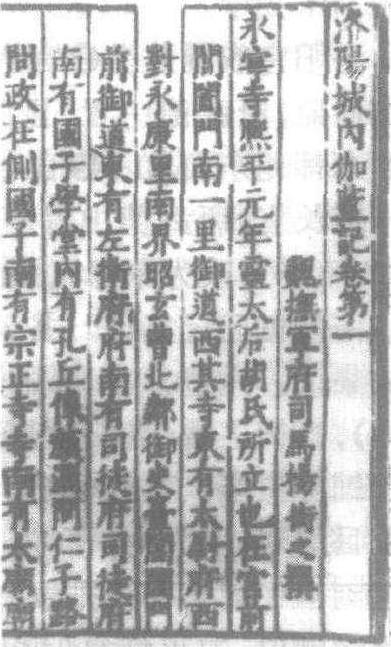 洛陽城內伽藍記卷第一
魏撫軍府司馬楊衒之撰
永寧寺熙平元年靈太后胡氏所立也在宮前
閶闔門南一里御道西其寺東有太尉府西
對永康里南界昭玄曹北鄰御史臺閶闔門
前御道東有左衛府府南有司徒府司徒府
南有國子學堂內有孔丘像顏淵問仁子路
問政在側國子南有宗正寺寺南有太廟廟